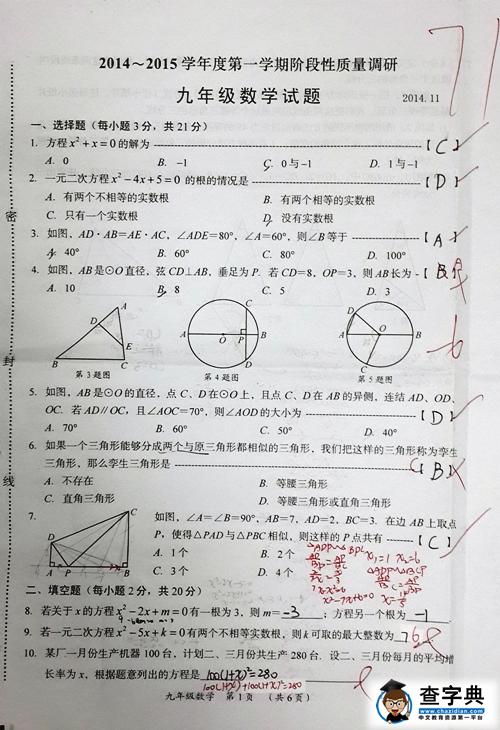 2014～2015 学年度第一学期阶段性质量调研
71
九年级数学试题
2014.11
一、选择题（每小题 3 分，共 21 分）
1. 方程 x²+x=0 的解为 【 C 】
A. 0 B. -1 C. 0 与 -1 D. 1 与 -1
2. 一元二次方程 x²-4x+5=0 的根的情况是 【 D 】
A. 有两个不相等的实数根 B. 有两个相等的实数根
C. 只有一个实数根 D. 没有实数根
3. 如图，AD·AB=AE·AC，∠ADE=80°，∠A=60°，则∠B 等于 【 A 】
A. 40° B. 60° C. 80° D. 100°
4. 如图，AB 是⊙O 直径，弦 CD⊥AB，垂足为 P. 若 CD=8，OP=3，则 AB 长为 【 B 】 A
A. 10 B. 8 C. 5 D. 3
A
D
E
B C
第 3 题图
C
A O P B
D
第 4 题图
D
A O B
C
第 5 题图
-6
5. 如图，AB 是⊙O 的直径，点 C、D 在⊙O 上，且点 C、D 在 AB 的异侧，连结 AD、OD、
OC. 若 AD∥OC，且∠AOC=70°，则∠AOD 的大小为 【 D 】
A. 70° B. 60° C. 50° D. 40°
6. 如果一个三角形能够分成两个与原三角形都相似的三角形，我们把这样的三角形称为孪生
三角形，那么孪生三角形是 【 B 】 C
A. 不存在 B. 等腰三角形
C. 直角三角形 D. 等腰三角形或直角三角形
7. 如图，∠A=∠B=90°，AB=7，AD=2，BC=3. 在边 AB 上取点
P，使得△PAD 与△PBC 相似，则这样的 P 点共有 【 C 】
A. 1 个 B. 2 个
C. 3 个 D. 4 个
C
D
A P B
△ADP∽△BPC
x₁=1 x₂=6
△ADP∽△BCP
x²-7x+6=0
二、填空题（每小题 2 分，共 20 分）
8. 若关于 x 的方程 x²-2x+m=0 有一根为 3，则 m= -3 ；方程另一个根为 -1
9. 若一元二次方程 x²-5x+k=0 有两个不相等实数根，则 k 可取的最大整数为 7 6
10. 某厂一月份生产机器 100 台，计划二、三月份共生产 280 台. 设二、三月份每月的平均增
长率为 x，根据题意列出的方程是 100(1+x)²=280
100(1+x)+100(1+x)²=280
九年级数学 第 1 页 （共 6 页）
密
封
线
查字典
www.chazidian.com
中文教育资源第一平台